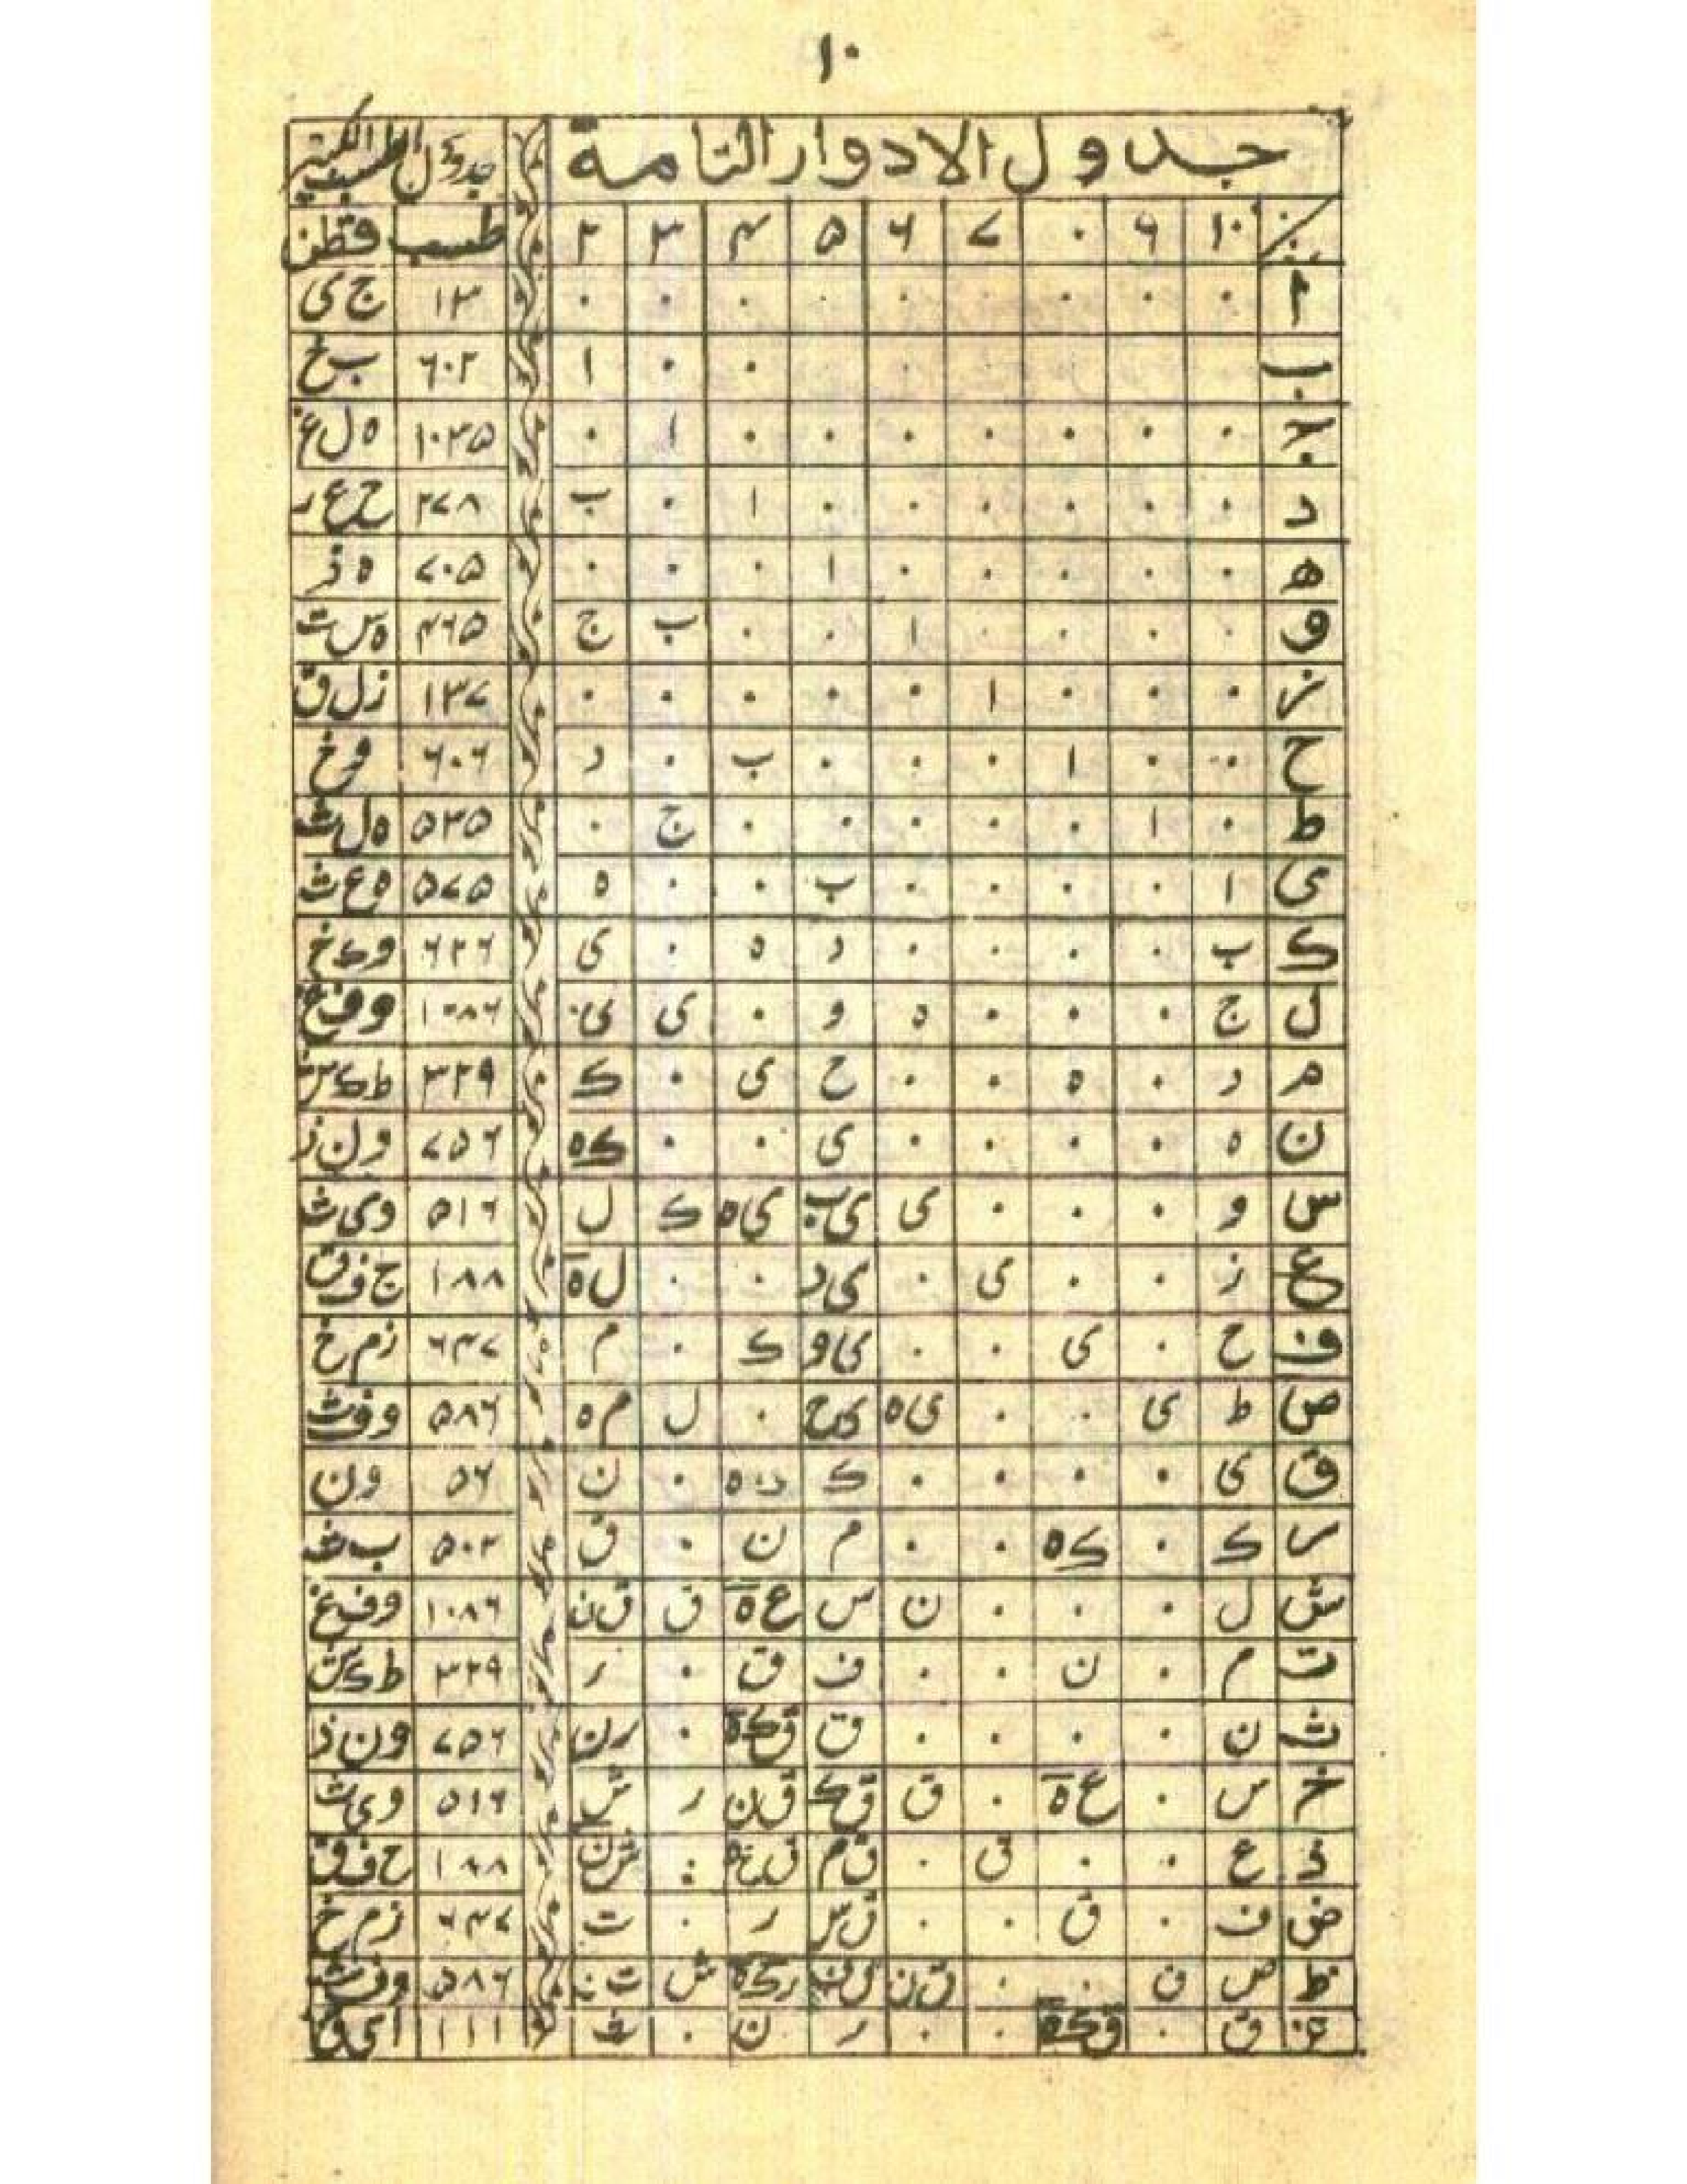 ١٠
جدول الادوار التامة
١٠ ٩ ٠ ٧ ٦ ٥ ٤ ٣ ٢ طسب قطن
ا ٠ ٠ ٠ ٠ ٠ ٠ ٠ ٠ ٠ ١٣ ج ى
ب ٠ ٠ ٠ ا ٦٠٢ ب خ
ج ٠ ٠ ٠ ٠ ٠ ٠ ٠ ا ٠ ١٠٣٥ ه ل غ
د ٠ ٠ ٠ ٠ ٠ ٠ ا ٠ ب ٢٧٨ ح ع ر
ه ٠ ٠ ٠ ٠ ٠ ا ٠ ٠ ٠ ٧٠٥ ه ذ
و ٠ ٠ ٠ ٠ ا ٠ ٠ ب ج ٤٦٥ ه س ت
ز ٠ ٠ ٠ ا ٠ ٠ ٠ ٠ ٠ ١٣٧ ز ل ق
ح ٠ ٠ ا ٠ ٠ ٠ ب ٠ د ٦٠٦ و خ
ط ٠ ا ٠ ٠ ٠ ٠ ٠ ج ٠ ٥٣٥ ه ل ث
ى ا ٠ ٠ ٠ ٠ ب ٠ ٠ ه ٥٧٥ ه ع ث
ك ب ٠ ٠ ٠ ٠ د ه ٠ ى ٦٢٦ و ك خ
ل ج ٠ ٠ ٠ ه و ٠ ى ى ١٠٨٦ و ف غ
م د ٠ ه ٠ ٠ ح ى ٠ ك ٣٢٩ ط ك ش
ن ه ٠ ٠ ٠ ٠ ى ٠ ٠ ك ه ٧٥٦ و ن ذ
س و ٠ ٠ ٠ ى ى ب ى ه ك ل ٥١٦ و ى ث
ع ز ٠ ٠ ى ٠ ى د ٠ ٠ ل ه ١٨٨ ح ف ق
ف ح ٠ ى ٠ ٠ ى و ك ٠ م ٦٤٧ ز م خ
ص ط ى ٠ ٠ ى ه ى ح ٠ ل م ه ٥٨٦ و ف ث
ق ى ٠ ٠ ٠ ٠ ك ٠ ن ٥٦ و ن
ر ك ٠ ك ه ٠ ٠ م ن ٠ ق ٥٠٢ ب ث
ش ل ٠ ٠ ٠ ن س ع ه ق ق ن ١٠٨٦ و ف غ
ت م ٠ ن ٠ ٠ ف ق ٠ ر ٣٢٩ ط ك ش
ث ن ٠ ٠ ٠ ٠ ق ق ك ه ٠ ر ن ٧٥٦ و ن ذ
خ س ٠ ع ه ٠ ق ق ك ق ن ر ش ٥١٦ و ى ث
ذ ع ٠ ٠ ق ٠ ق م ق ع ه ش ن ١٨٨ ح ف ق
ض ف ٠ ق ٠ ٠ ق س ر ٠ ت ٦٤٧ ز م خ
ظ ص ق ٠ ٠ ق ن ر ك ه ش ت ن ٥٨٦ و ف ث
غ ق ٠ ق ك ه ٠ ٠ ر ن ٠ ث ١١١ ا ى ق